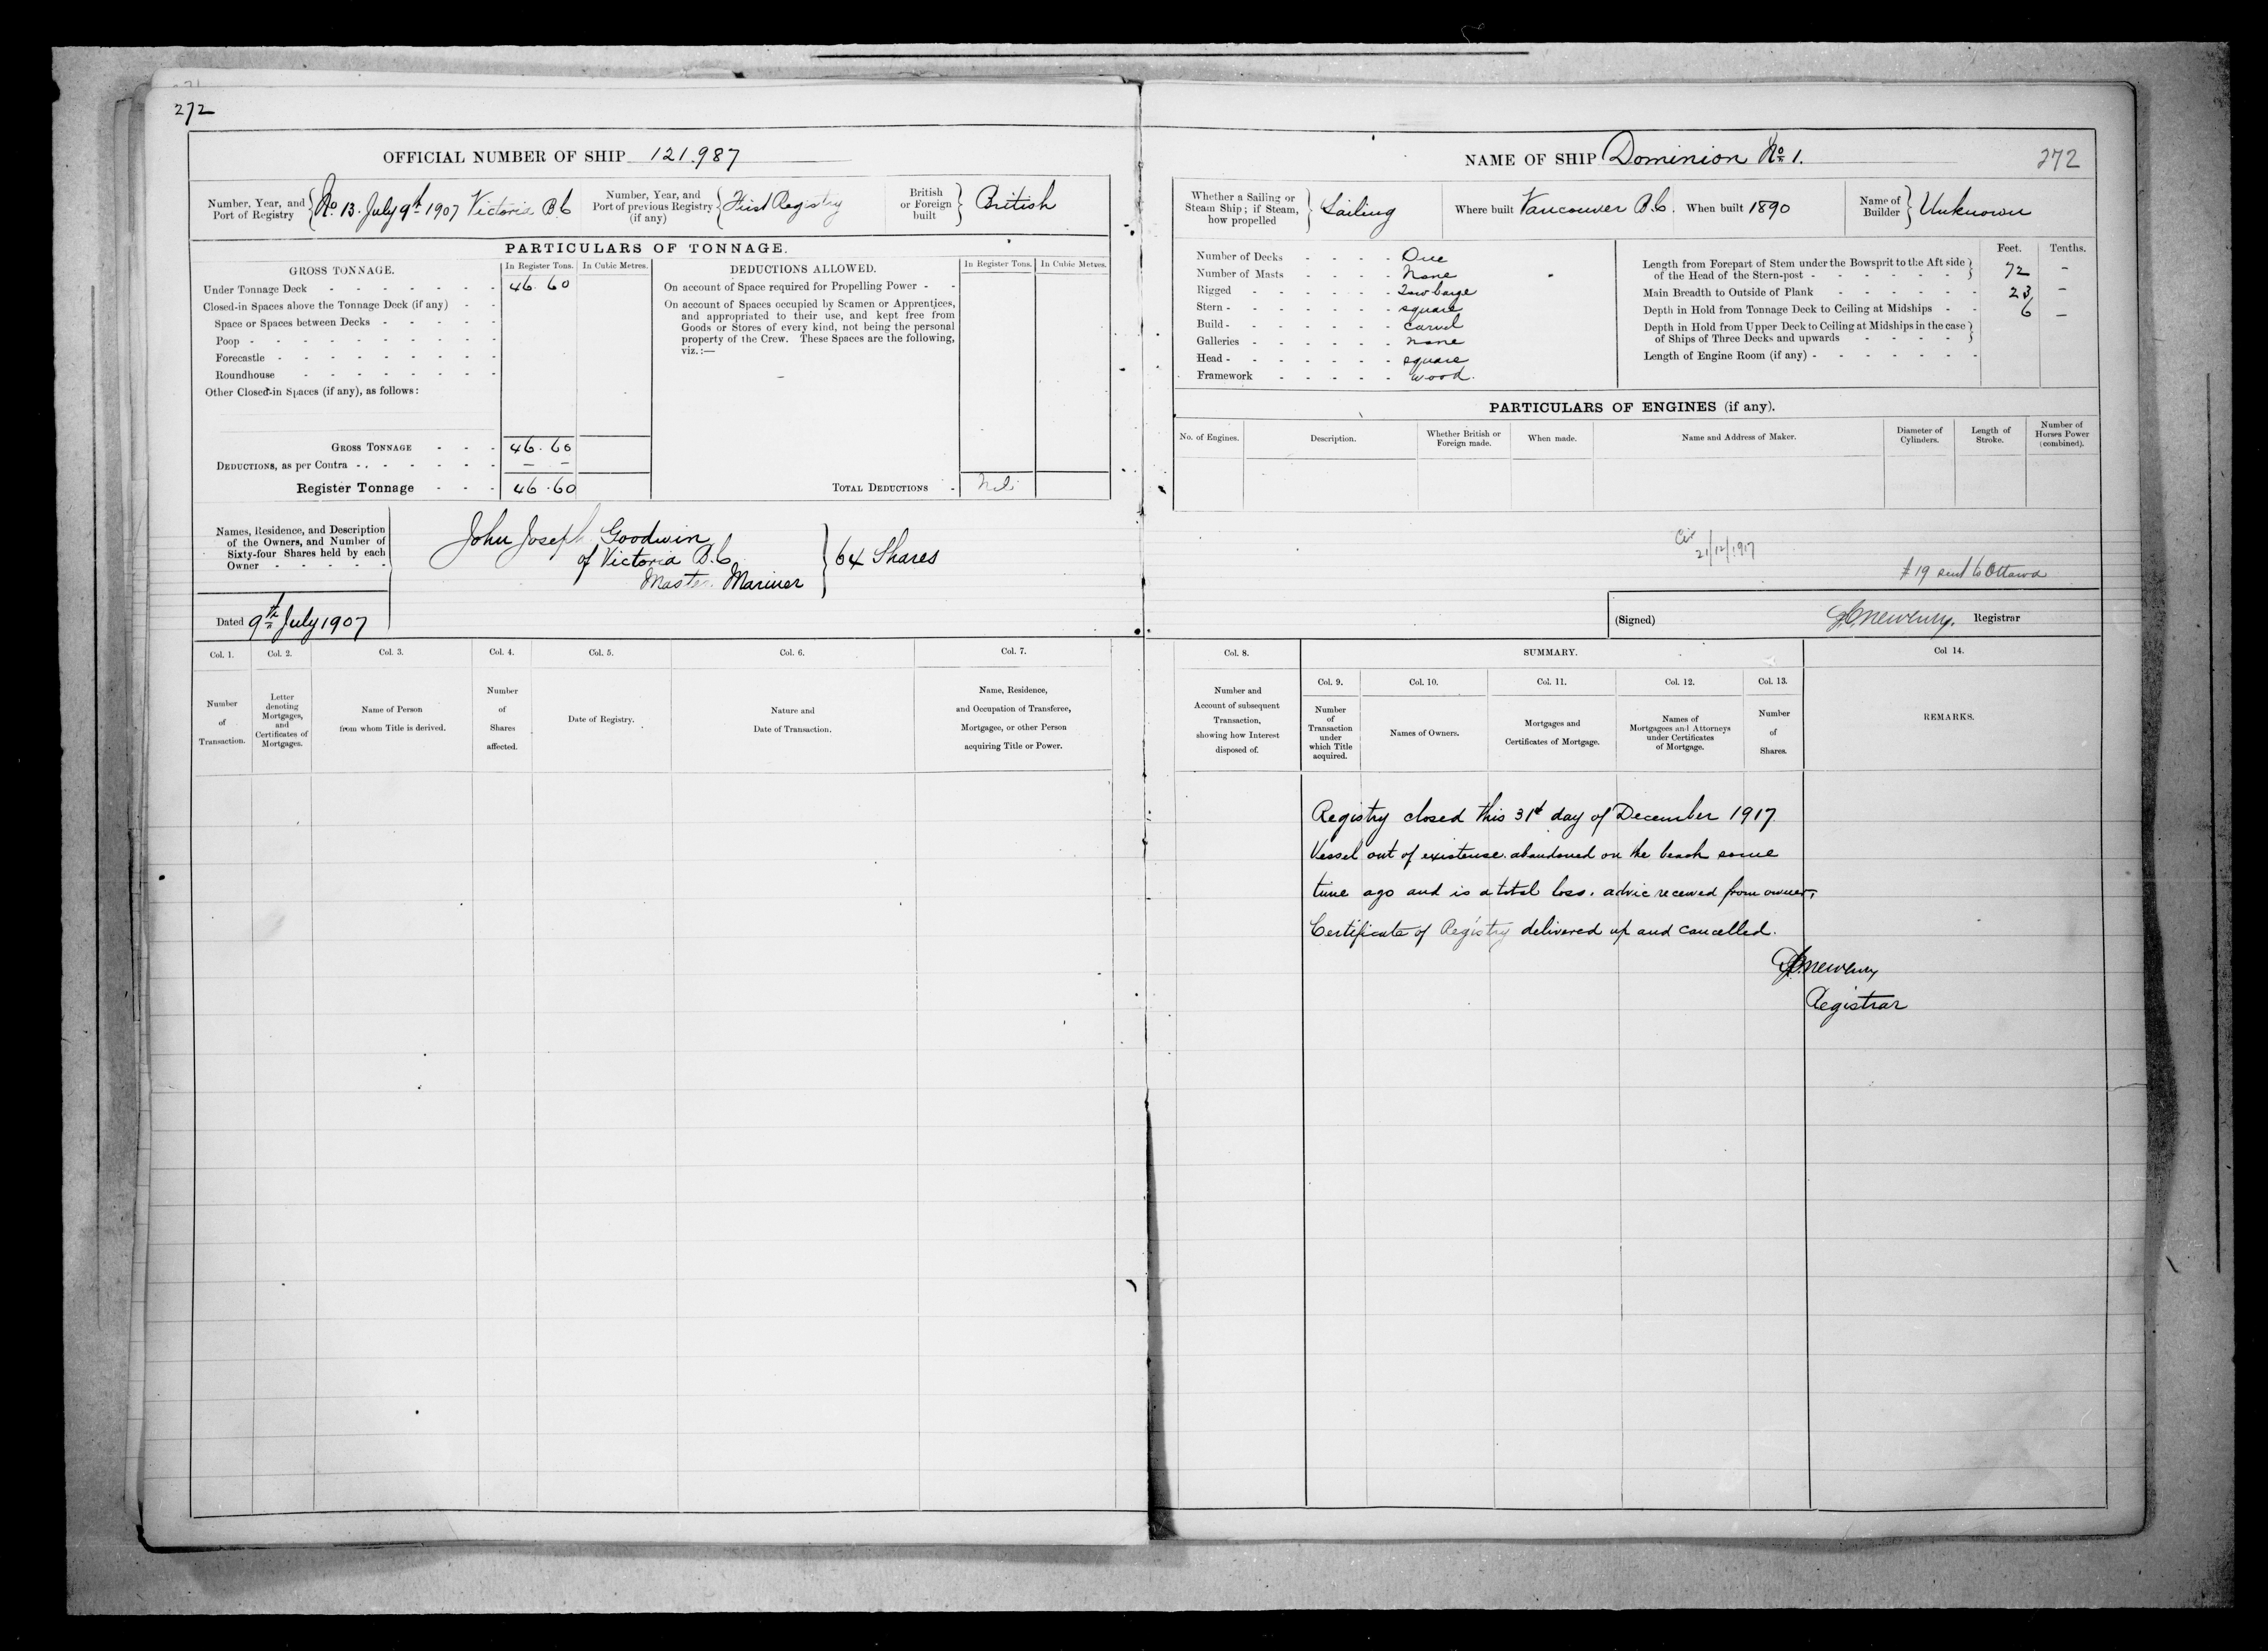 272
OFFICIAL NUMBER OF SHIP 121.987
Number, Year, and
Port of Registry
No 13. July 9th 1907 Victoria B.C
Number, Year, and
Port of previous Registry
(if any)
First Registry
British
or Foreign
built
British
PARTICULARS OF TONNAGE.
GROSS TONNAGE.
In Register Tons. In Cubic Metres.
Under Tonnage Deck - - - - - - - 46.60
Closed-in Spaces above the Tonnage Deck (if any) - -
Space or Spaces between Decks - - - - -
Poop - - - - - - - - - -
Forecastle - - - - - - - -
Roundhouse - - - - - - -
Other Closed-in Spaces (if any), as follows:
GROSS TONNAGE - - - 46.60
DEDUCTIONS, as per Contra - - - - - - - — —
Register Tonnage - - - 46.60
DEDUCTIONS ALLOWED.
In Register Tons. In Cubic Metres.
On account of Space required for Propelling Power - -
On account of Spaces occupied by Seamen or Apprentices,
and appropriated to their use, and kept free from
Goods or Stores of every kind, not being the personal
property of the Crew. These Spaces are the following,
viz.:—
TOTAL DEDUCTIONS - Nil
Names, Residence, and Description
of the Owners, and Number of
Sixty-four Shares held by each
Owner - - - - -
John Joseph Goodwin
of Victoria B.C
Master Mariner
64 Shares
Dated 9th July 1907
Col. 1. Col. 2. Col. 3. Col. 4. Col. 5. Col. 6. Col. 7.
Number
of
Transaction.
Letter
denoting
Mortgages,
and
Certificates of
Mortgages.
Name of Person
from whom Title is derived.
Number
of
Shares
affected.
Date of Registry.
Nature and
Date of Transaction.
Name, Residence,
and Occupation of Transferee,
Mortgagee, or other Person
acquiring Title or Power.
NAME OF SHIP Dominion No 1.
272
Whether a Sailing or
Steam Ship; if Steam,
how propelled
Sailing
Where built Vancouver B.C. When built 1890
Name of
Builder
Unknown
Number of Decks - - - - One
Number of Masts - - - - None
Rigged - - - - - Tow barge
Stern - - - - - - square
Build - - - - - - carvel
Galleries - - - - - none
Head - - - - - - square
Framework - - - - - wood.
Feet. Tenths.
Length from Forepart of Stem under the Bowsprit to the Aft side
of the Head of the Stern-post - - - - - -
72 —
Main Breadth to Outside of Plank - - - - - - 23 —
Depth in Hold from Tonnage Deck to Ceiling at Midships - - 6 —
Depth in Hold from Upper Deck to Ceiling at Midships in the case
of Ships of Three Decks and upwards - - - -
Length of Engine Room (if any) - - - - - - -
PARTICULARS OF ENGINES (if any).
No. of Engines.
Description.
Whether British or
Foreign made.
When made.
Name and Address of Maker.
Diameter of
Cylinders.
Length of
Stroke.
Number of
Horses Power
(combined).
21/12/1917
# 19 sent to Ottawa
(Signed) Newbury. Registrar
Col. 8. SUMMARY. Col 14.
Col. 9. Col. 10. Col. 11. Col. 12. Col. 13.
Number and
Account of subsequent
Transaction,
showing how Interest
disposed of.
Number
of
Transaction
under
which Title
acquired.
Names of Owners.
Mortgages and
Certificates of Mortgage.
Names of
Mortgagees and Attorneys
under Certificates
of Mortgage.
Number
of
Shares.
REMARKS.
Registry closed this 31st day of December 1917
Vessel out of existense. abandoned on the beach some
time ago and is a total loss. advic received from owner,
Certificate of Registry delivered up and cancelled.
Newbury
Registrar